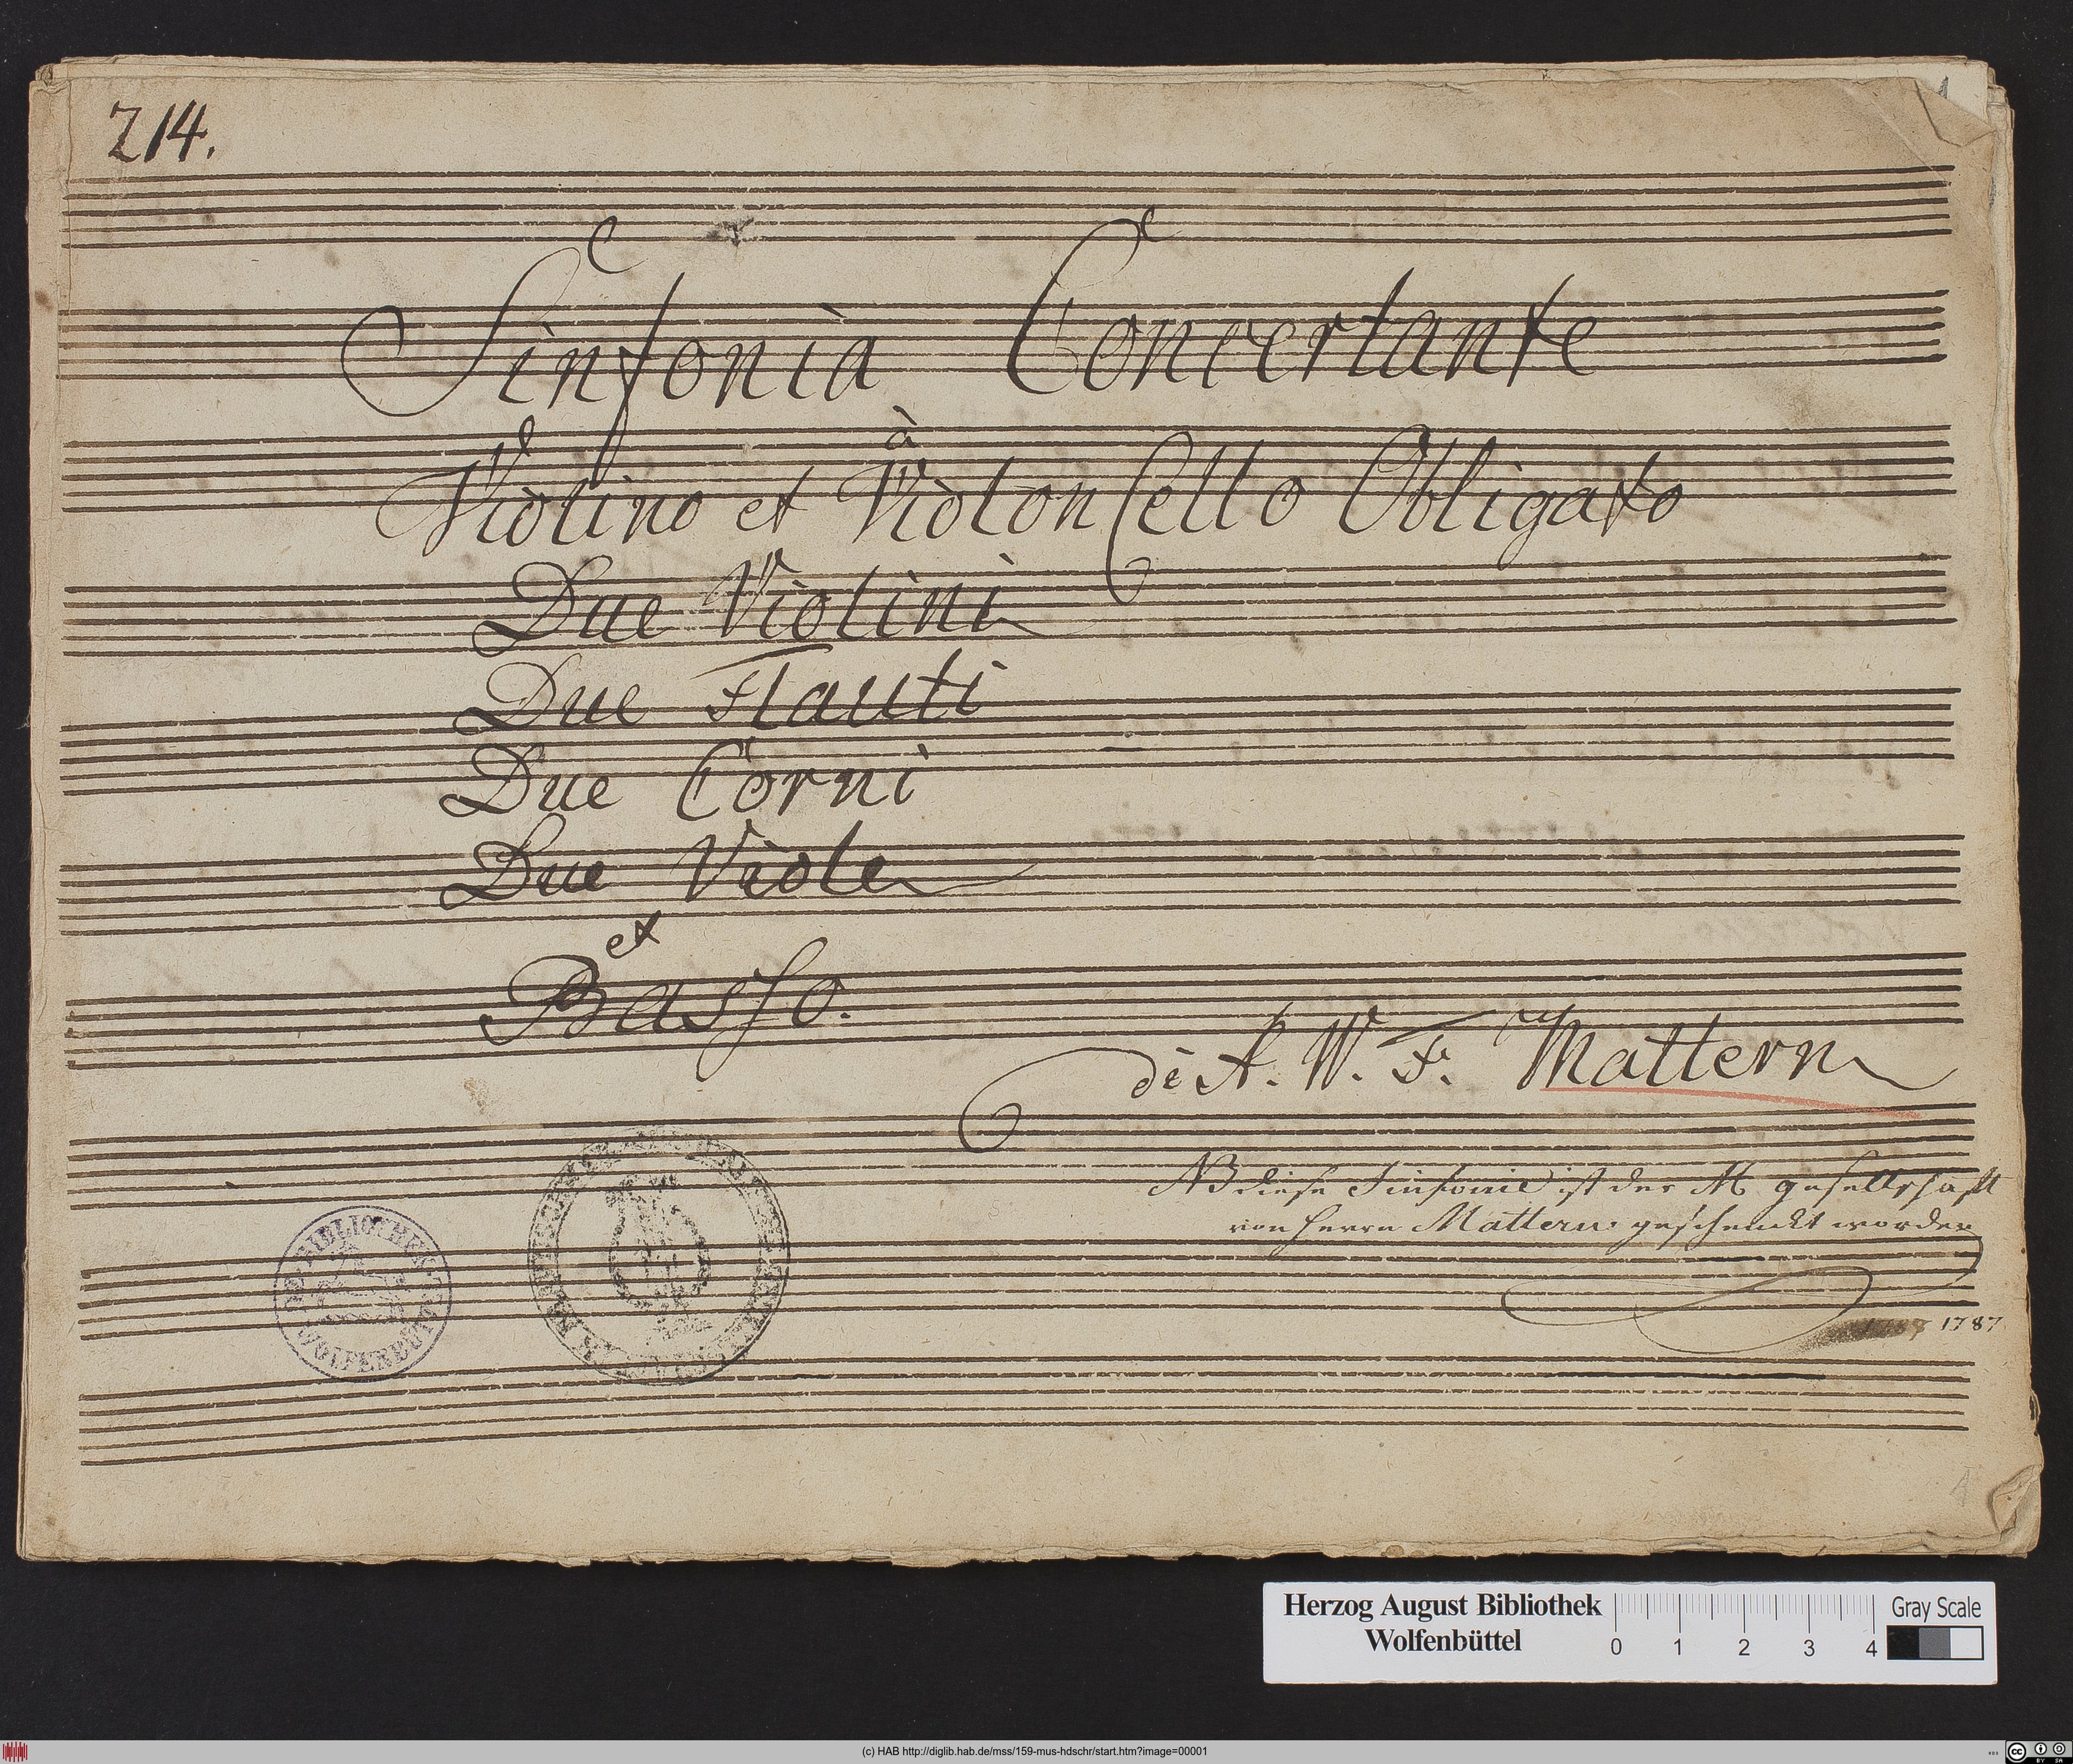 214.
1
Sinfonia Concertante
à
Violino et Violoncello Obligato
Due Violini
Due Flauti
Due Corni
Due Viole
et
Basso.
di A. W. F. Mattern
NB diese Sinfonie ist der M gesellschaft
von Herrn Mattern geschenckt worden
1787
BIBLIOTHEK
WOLFENBÜTTEL
Herzog August Bibliothek
Wolfenbüttel
0 1 2 3 4
Gray Scale
(c) HAB http://diglib.hab.de/mss/159-mus-hdschr/start.htm?image=00001
cc BY SA